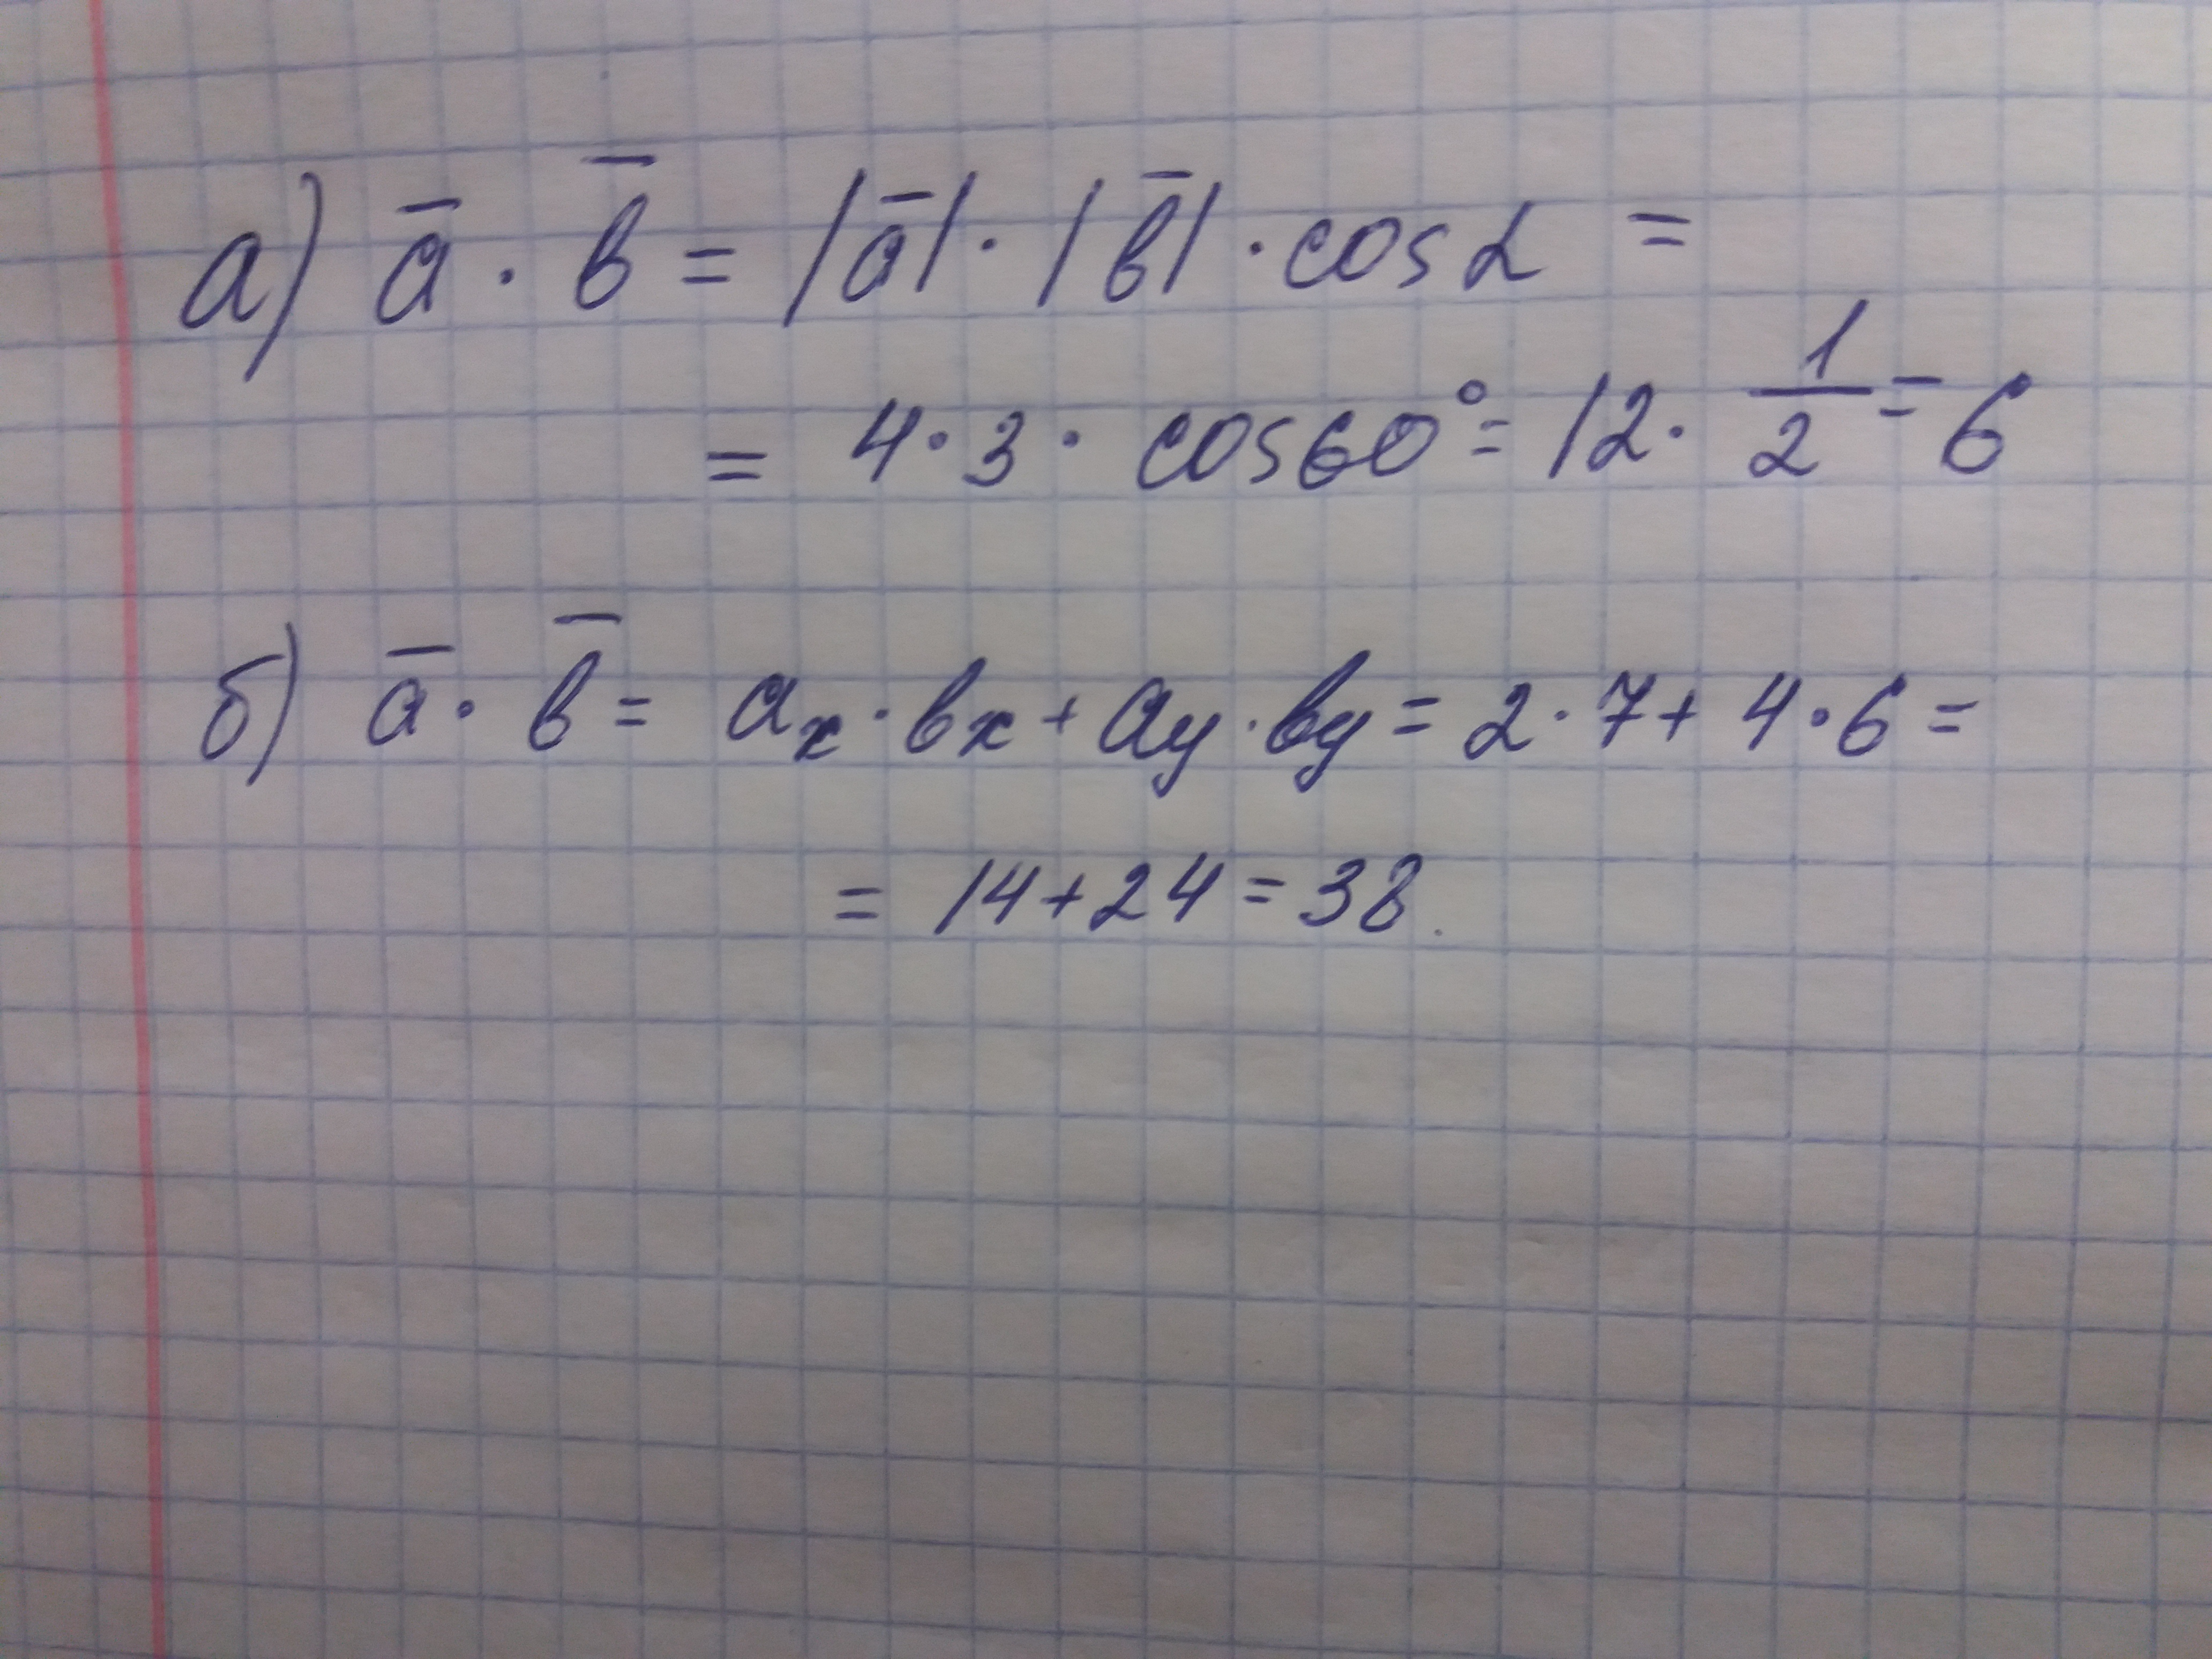 а) a̅ · b̅ = |a̅| · |b̅| · cos α =
= 4 · 3 · cos 60° = 12 · 1/2 = 6
б) a̅ · b̅ = aₓ · bₓ + ay · by = 2 · 7 + 4 · 6 =
= 14 + 24 = 38.